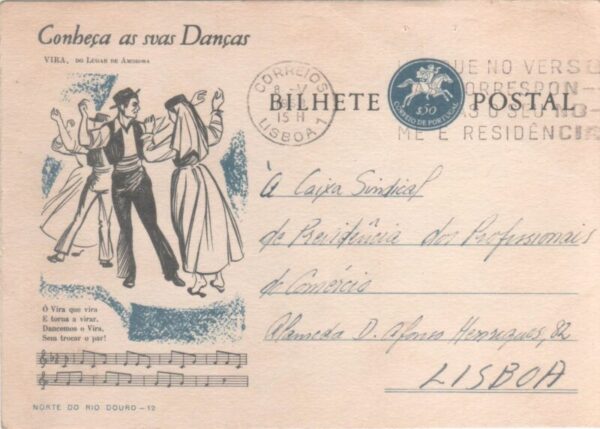 Conheça as suas Danças
VIRA, DO LUGAR DE AMOROSA
CORREIOS
8-V
15 H
LISBOA 1
BILHETE POSTAL
$50
CORREIO DE PORTUGAL
QUE NO VERSO
CORRESPON-
O SEU NO-
ME E RESIDÊNCIA
À Caixa Sindical
de Previdência dos Profissionais
do Comércio
Alameda D. Afonso Henriques, 82
LISBOA
Ó Vira que vira
E torna a virar,
Dancemos o Vira,
Sem trocar o par!
NORTE DO RIO DOURO - 12